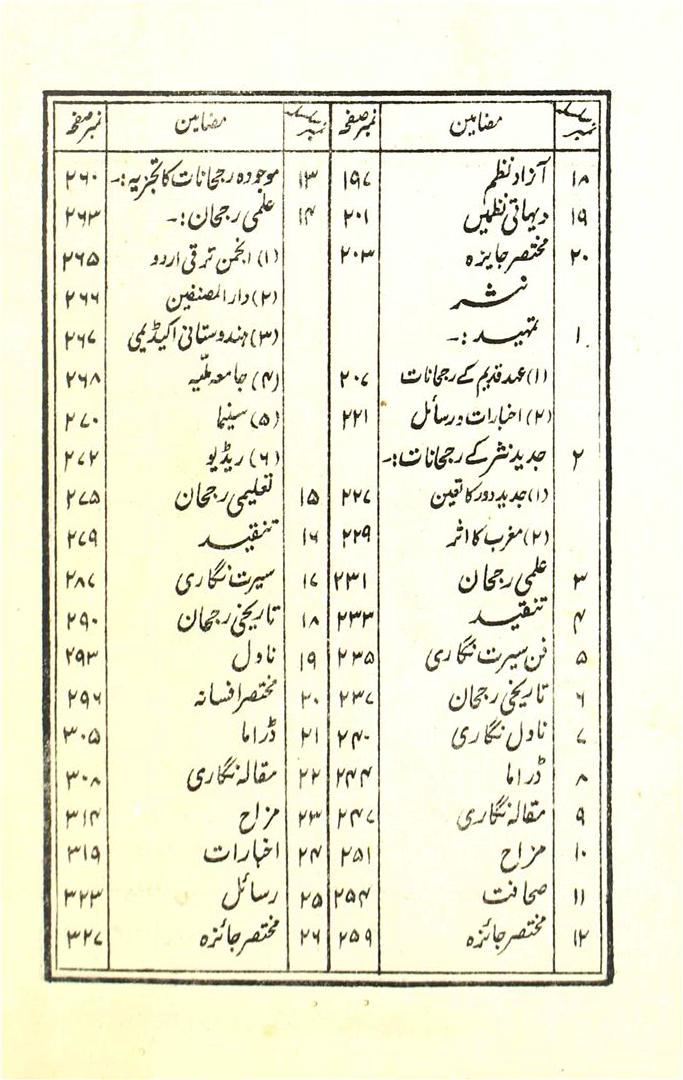 نمبر سلسلہ مضامین نمبر صفحہ
۱۸ آزاد نظم ۱۹۷
۱۹ دیہاتی نظمیں ۲۰۱
۲۰ مختصر جایزہ ۲۰۳
نثر
۱ تمہید :۔
(۱) عہد قدیم کے رجحانات ۲۰۷
(۲) اخبارات و رسائل ۲۲۱
۲ جدید نثر کے رجحانات :۔
(۱) جدید دور کا تعین ۲۲۷
(۲) مغرب کا اثر ۲۲۹
۳ علمی رجحان ۲۳۱
۴ تنقید ۲۳۳
۵ فن سیرت نگاری ۲۳۵
۶ تاریخی رجحان ۲۳۷
۷ ناول نگاری ۲۴۰
۸ ڈراما ۲۴۴
۹ مقالہ نگاری ۲۴۷
۱۰ مزاح ۲۵۱
۱۱ صحافت ۲۵۴
۱۲ مختصر جائزہ ۲۵۹
نمبر سلسلہ مضامین نمبر صفحہ
۱۳ موجودہ رجحانات کا تجزیہ :۔ ۲۶۰
۱۴ علمی رجحان :۔ ۲۶۳
(۱) انجمن ترقی اردو ۲۶۵
(۲) دار المصنفین ۲۶۶
(۳) ہندوستانی اکیڈیمی ۲۶۷
(۴) جامعہ ملّیہ ۲۶۸
(۵) سینما ۲۷۰
(۶) ریڈیو ۲۷۲
۱۵ تعلیمی رجحان ۲۷۵
۱۶ تنقید ۲۷۹
۱۷ سیرت نگاری ۲۸۷
۱۸ تاریخی رجحان ۲۹۰
۱۹ ناول ۲۹۳
۲۰ مختصر افسانہ ۲۹۶
۲۱ ڈراما ۳۰۵
۲۲ مقالہ نگاری ۳۰۸
۲۳ مزاح ۳۱۴
۲۴ اخبارات ۳۱۹
۲۵ رسائل ۳۲۳
۲۶ مختصر جائزہ ۳۲۷